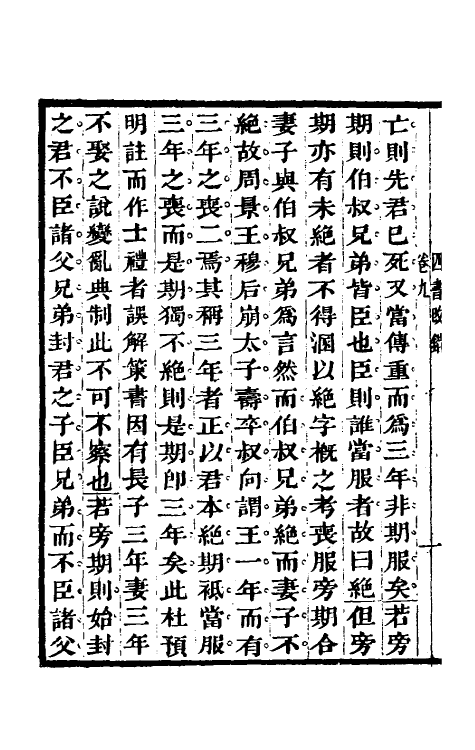 四書改錯
卷九
亡則先君已死又當傳重而爲三年非期服矣若旁
期則伯叔兄弟皆臣也臣則誰當服者故曰絕但旁
期亦有未絕者不得溷以絕字槪之考喪服旁期合
妻子與伯叔兄弟爲言然而伯叔兄弟絕而妻子不
絕故周景王穆后崩太子壽卒叔向謂王一年而有
三年之喪二焉其稱三年者正以君本絕期祗當服
三年之喪而是期獨不絕則是期卽三年矣此杜預
明註而作士禮者誤解策書因有長子三年妻三年
不娶之說變亂典制此不可不察也若旁期則始封
之君不臣諸父兄弟封君之子臣兄弟而不臣諸父